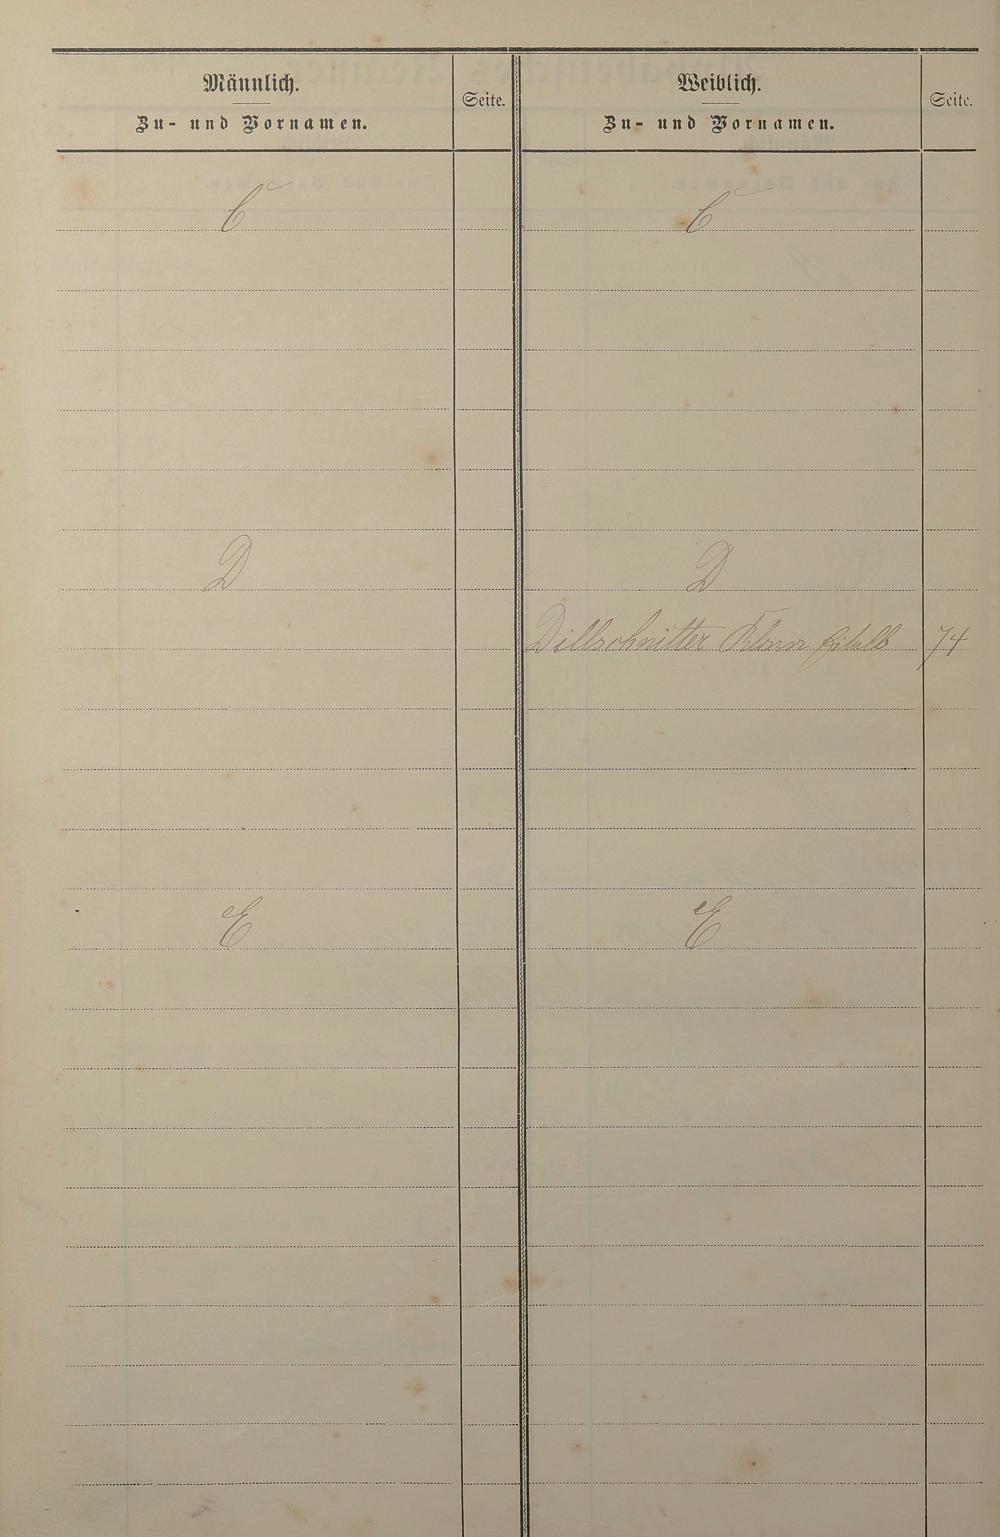 Männlich.
Zu- und Vornamen.
Seite.
Weiblich.
Zu- und Vornamen.
Seite.
C
C
D
D
Dillschnitter 74
E
E